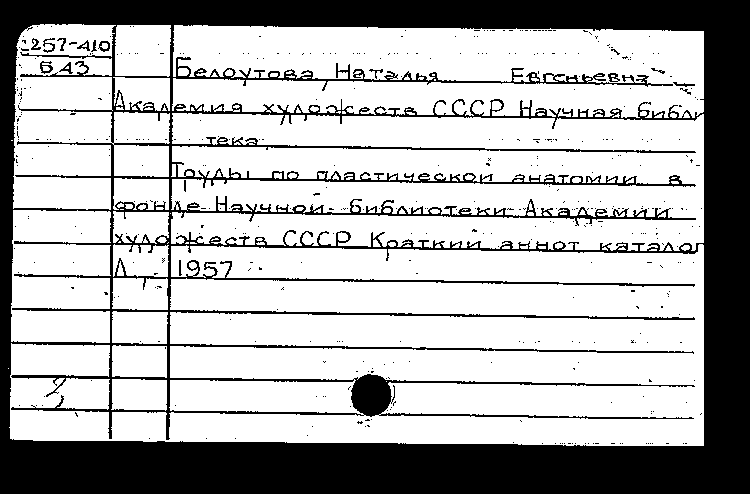 257-410
БАЗ
Белоутова, Наталья Евгеньевна
Академия художеств СССР Научная библи
тека
Труды по пластической анатомии в
фонде Научной библиотеки Академии
художеств СССР Краткий аннот каталог
Л., 1957
3